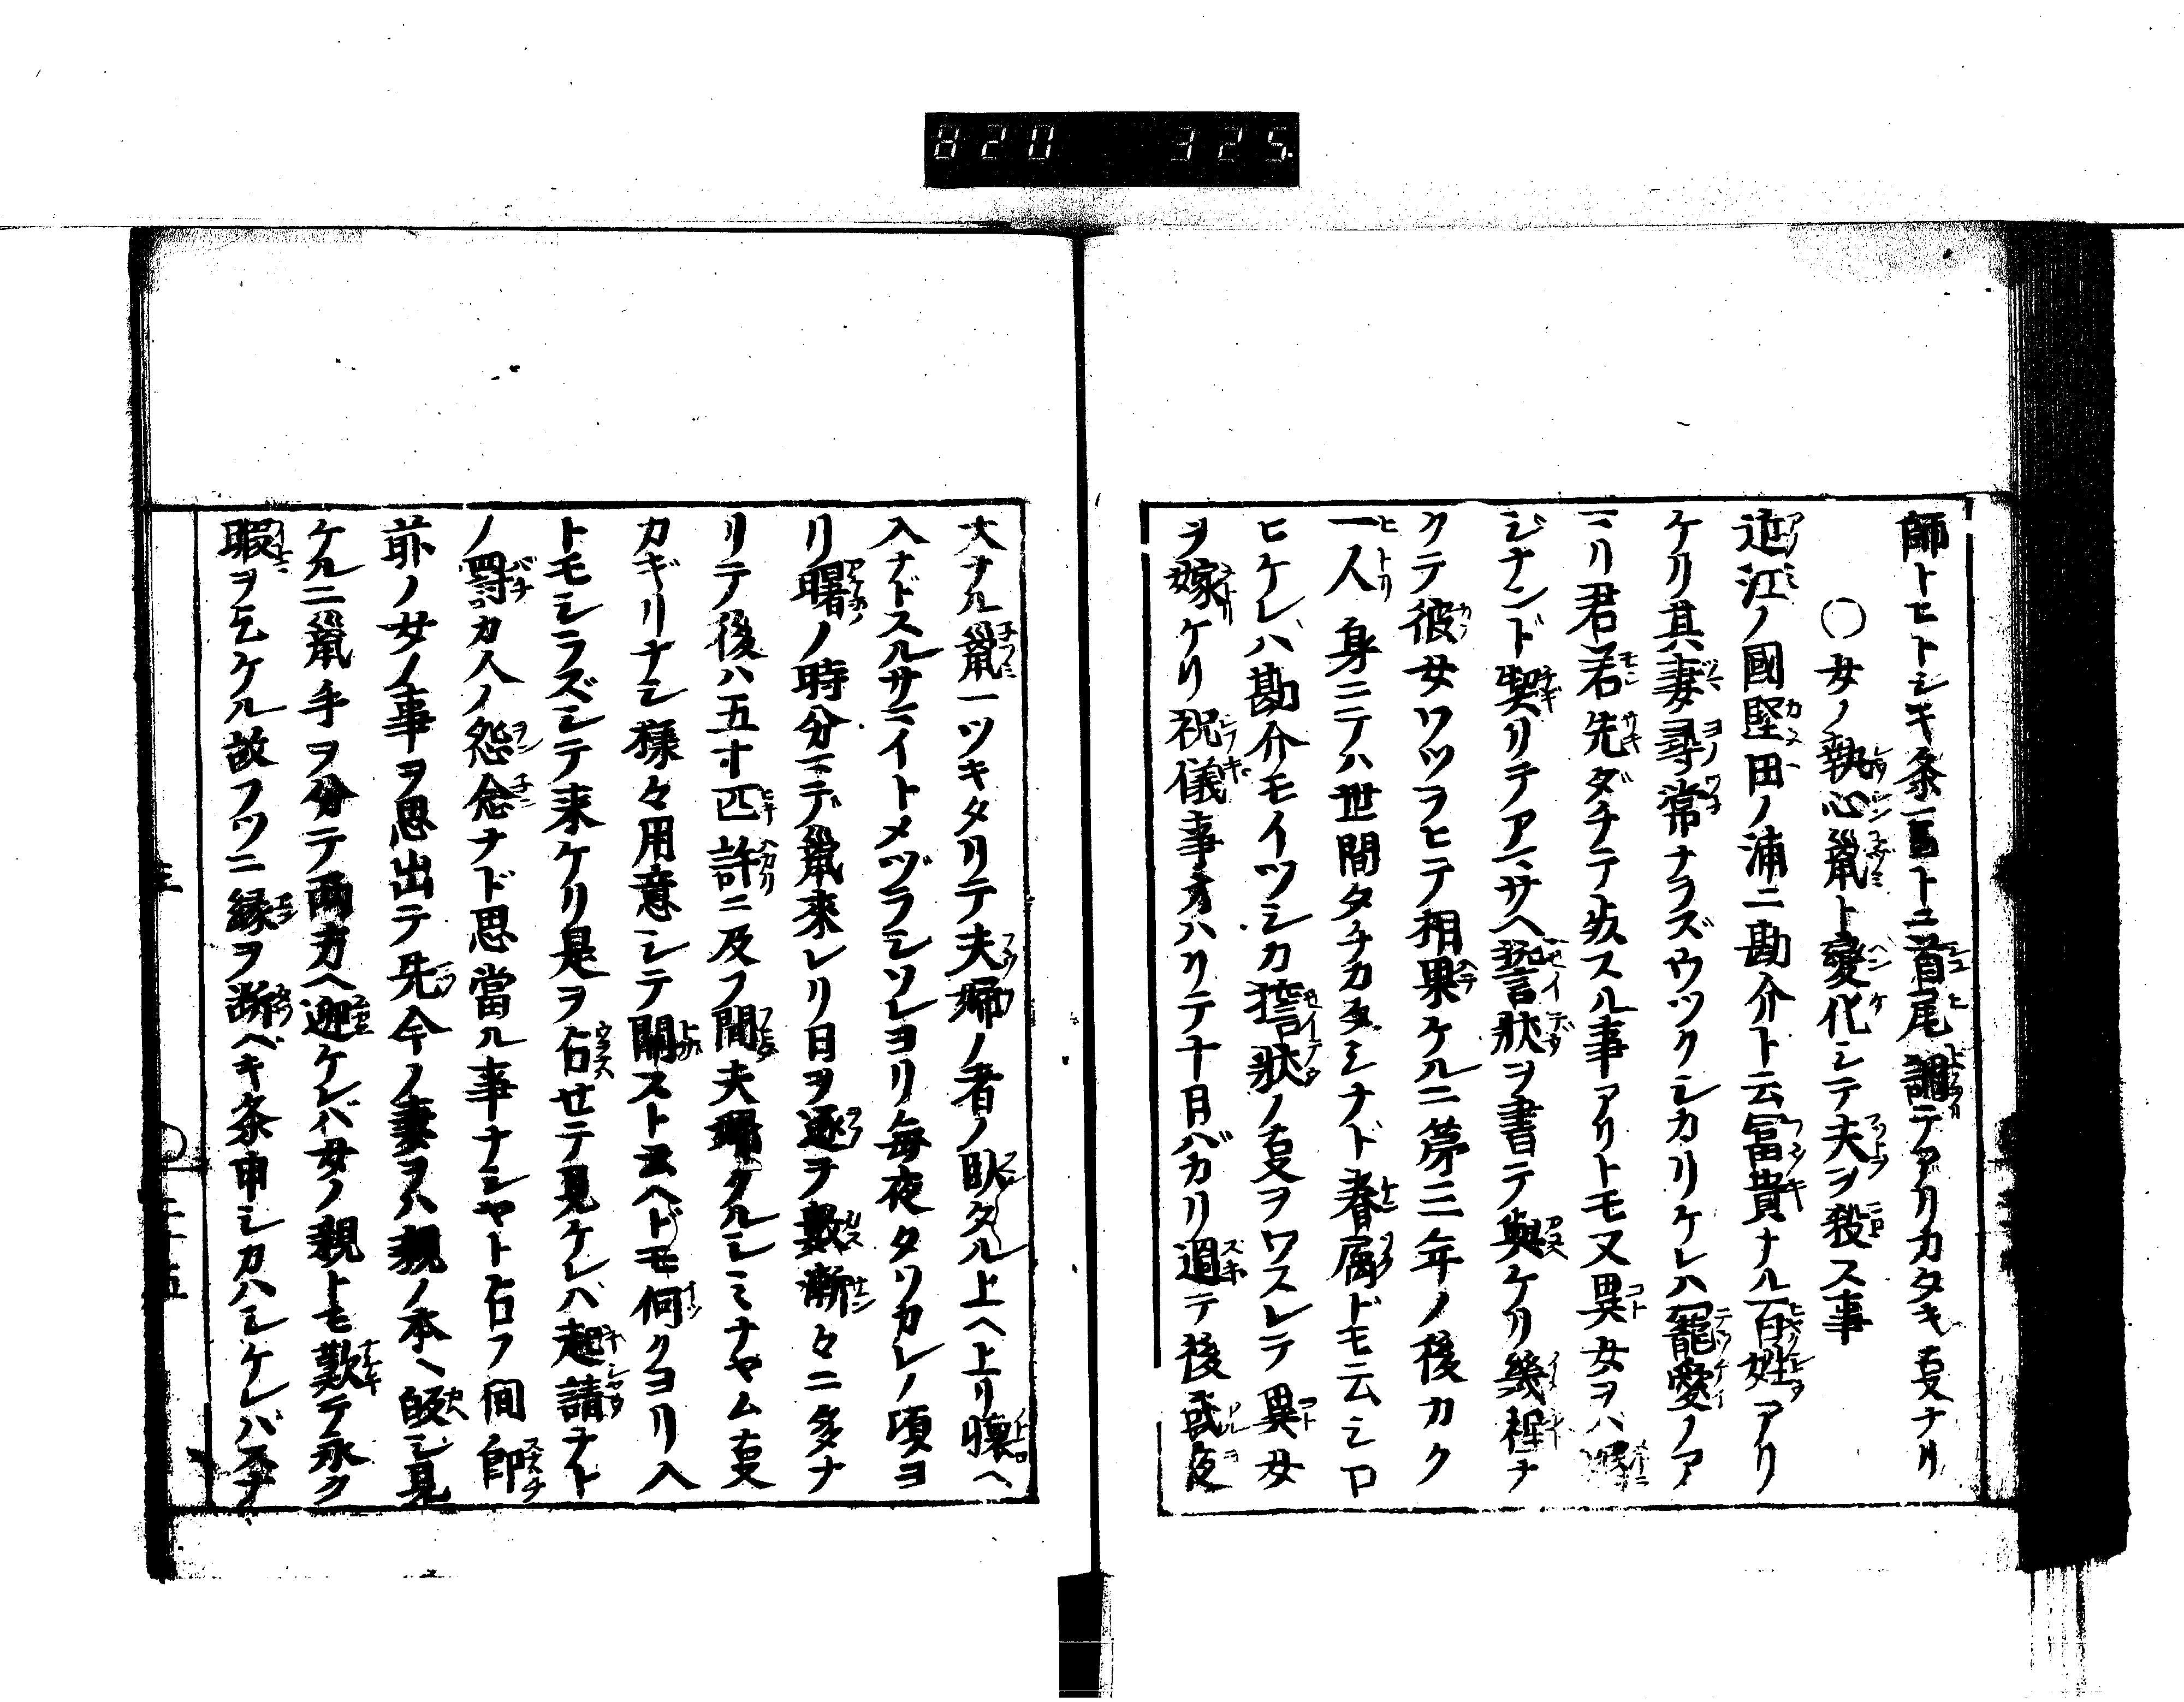 820 325.
師トヒトシキ条言トニ首尾調テアリカタキ叓ナリ
〇女ノ執心鼠ト變化シテ夫ヲ殺ス事
近江ノ國堅田ノ浦ニ勘介ト云冨貴ナル百姓アリ
ケリ其妻尋常ナラズウツクシカリケレハ寵愛ノア
マリ君若先ダチテ歿スル事アリトモ又異女ヲハ嫁
ジナンド契リテアマサヘ誓状ヲ書テ與ケリ幾程ナ
クテ彼女ワツラヒテ相果ケルニ第三年ノ後カク
一人身ニテハ世間タチカタシナド眷属ドモ云シロ
ヒケレハ勘介モイツシカ誓状ノ叓ヲワスレテ異女
ヲ嫁ケリ祝儀事オハリテ十日バカリ過テ後或夜
大ナル鼠一ツキタリテ夫婦ノ者ノ臥タル上ヘ上リ懐ヘ
入ナドスルサマイトメヅラシソレヨリ毎夜タソカレノ頃ヨ
リ曙ノ時分マデ鼠來レリ日ヲ逐ヲ數漸々ニ多ナ
リテ後ハ五十匹許ニ及フ間夫婦クルシミナヤム叓
カギリナシ様々用意シテ閉ストイヘドモ何クヨリ入
トモシラズシテ来ケリ是ヲ占セテ見ケレハ起請ナト
ノ罸カ人ノ怨念ナド思當ル事ナシヤト占フ間即
前ノ女ノ事ヲ思出テ先今ノ妻ヲハ親ノ本ヘ皈シ見
ケルニ鼠手ヲ分テ両方ヘ迎ケレバ女ノ親トモ歎テ永ク
暇ヲ乞ケル故フツニ縁ヲ断ベキ条申シカハシケレバスナ